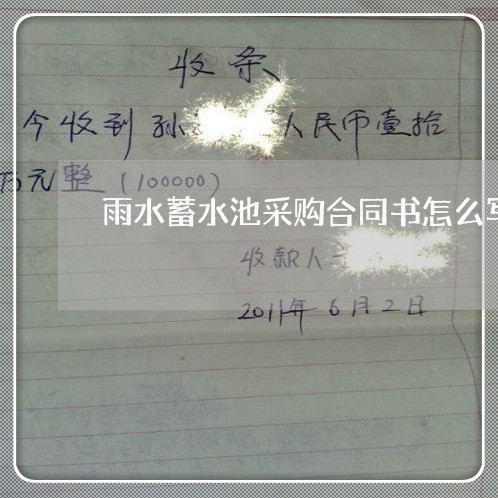 收条
今收到孙 人民币壹拾
万元整（100000）
雨水蓄水池采购合同书怎么写
收款人
2011年6月2日